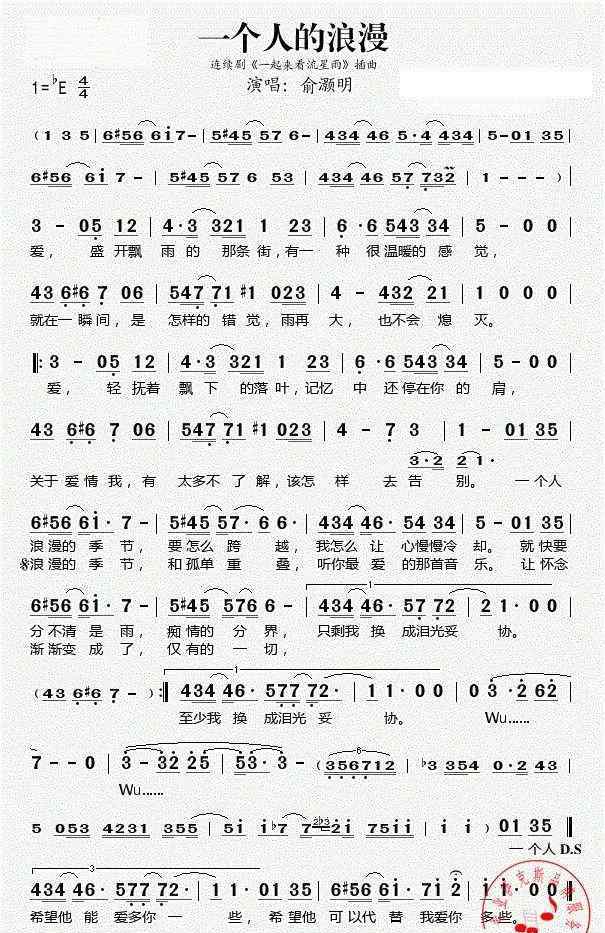 一个人的浪漫
连续剧《一起来看流星雨》插曲
1=♭E 4/4 演唱：俞灏明
( 1 3 5 | 6#56 6i7- | 5#45 57 6- | 434 46 5·4 434 | 5-01 35 |
6#56 6i 7 - | 5#45 57 6 53 | 434 46 57 732 | 1 - - - ) |
3 - 05 12 | 4·3 321 1 23 | 6·6 543 34 | 5 - 0 0 |
爱， 盛 开飘 雨 的 那条 街，有一 种 很温暖的 感 觉，
43 6#6 7 06 | 547 71 #1 023 | 4 - 432 21 | 1 0 0 0 |
就在一瞬间，是 怎样的 错 觉，雨再 大， 也不会 熄 灭。
‖: 3 - 05 12 | 4·3 321 1 23 | 6·6 543 34 | 5 - 0 0 |
爱， 轻 抚着 飘 下 的落 叶，记忆 中 还 停在你 的 肩，
43 6#6 7 06 | 547 71 #1 023 | 4 - 7 3 | 1 - 01 35 |
3·2 21·
关于 爱 情 我，有 太多不 了 解，该怎 样 去 告 别。 一个人
6#56 6i· 7 - | 5#45 57· 6 6· | 434 46· 54 34 | 5 - 01 35 |
浪漫的 季 节， 要怎么 跨 越，我怎么 让 心慢慢冷 却。 就快要
浪漫的 季 节， 和孤单 重 叠，听你最 爱 的那首音 乐。 让怀念
1
6#56 6i· 7 - | 5#45 576 6 - | 434 46· 57 72· | 2 1· 0 0 |
分不清 是 雨， 痴情的 分 界， 只剩我 换 成泪光妥 协。
渐渐变 成 了， 仅有的 一 切，
1
( 43 6#6 7 - ) :‖ 434 46· 577 72· | 1 1· 0 0 | 0 3·2 62 |
至少我 换 成泪光 妥 协。 Wu......
7 - - 0 | 3-32 25 | 53· 3 - | (356712 | ♭3 354 0·2 43 |
Wu......
5 053 4231 355 | 5i i♭7 7·2i 2i | 7５i i i· ) 01 35 ‖
一个人 D.S
3
434 46· 577 72· | 1 1· 01 35 | 6#56 6i· i 7 | i - 0 0 ‖
希望他 能 爱多你 一 些，希望他 可以代 替 我爱你 多些。